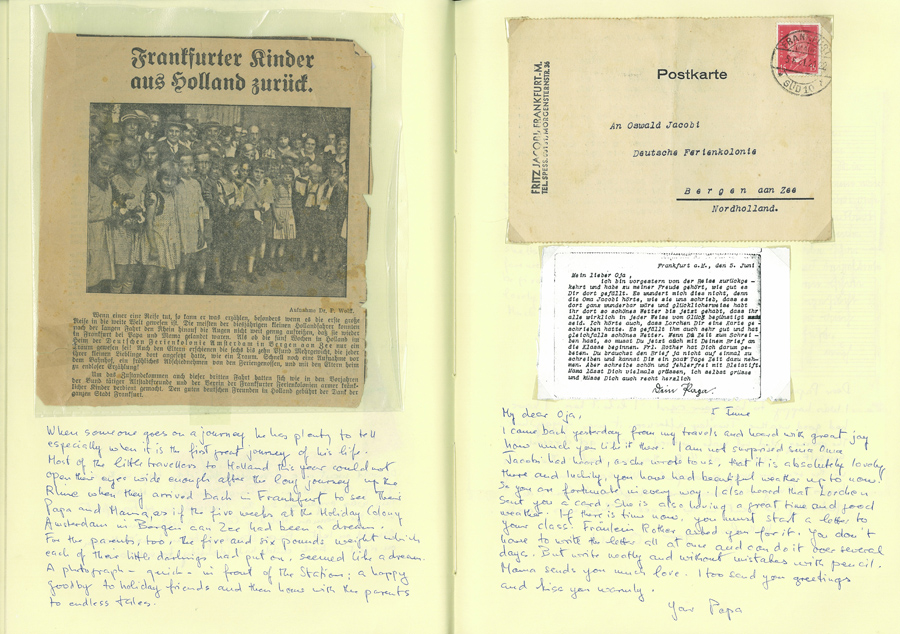 Frankfurter Kinder
aus Holland zurück.
Aufnahme Dr. P. Wolff.
Wenn einer eine Reise tut, so kann er was erzählen, besonders wenn es die erste große
Reise in die weite Welt gewesen ist. Die meisten der diesjährigen kleinen Hollandfahrer konnten
nach der langen Fahrt den Rhein hinauf die Augen nicht weit genug auftun, daß sie wieder
in Frankfurt bei Papa und Mama gelandet waren. Als ob die fünf Wochen in Holland im
Heim der Deutschen Ferienkolonie Amsterdam in Bergen aan Zee nur ein
Traum gewesen sei! Auch den Eltern erschienen die sechs Pfund Mehrgewicht, die jeder
ihrer kleinen Lieblinge dort angesetzt hatte, wie ein Traum. Schnell noch eine Aufnahme vor
dem Bahnhof, ein fröhliches Abschiednehmen von den Feriengenossen, und mit den Eltern heim
zu endloser Erzählung!
Um das Zustandekommen auch dieser dritten Fahrt hatten sich wie in den Vorjahren
der Bund tätiger Altstadtfreunde und der Verein der Frankfurter Ferienkolonien
verdient gemacht. Den guten deutschen Freunden in Holland gebührt der Dank der
ganzen Stadt Frankfurt.
When someone goes on a journey he has plenty to tell
especially when it is the first great journey of his life.
Most of the little travellers to Holland this year could not
open their eyes wide enough after the long journey up the
Rhine when they arrived back in Frankfurt to see their
Papa and Mama, as if the five weeks at the Holiday Colony
Amsterdam in Bergen aan Zee had been a dream.
For the parents, too, the five and six pounds weight which
each of their little darlings had put on, seemed like a dream.
A photograph - quick - in front of the Station; a happy
goodby to holiday friends and then home with the parents
to endless tales.
FRITZ JACOBI, FRANKFURT-M.
MORGENSTERNSTR. 36
Postkarte
An Oswald Jacobi
Deutsche Ferienkolonie
Bergen aan Zee
Nordholland.
Frankfurt a.M., den 5. Juni
Mein lieber Oja,
ich bin vorgestern von der Reise zurückge-
kehrt und habe zu meiner Freude gehört, wie gut es
Dir dort gefällt. Es wundert mich dies nicht, denn
die Oma Jacobi hörte, wie sie uns schrieb, dass es
dort ganz wunderbar wäre und glücklicherweise habt
ihr dort so schönes Wetter bis jetzt gehabt, dass ihr
alle wirklich in jeder Weise vom Glück begünstigt
seid. Ich hörte auch, dass Lorchen Dir eine Karte ge-
schrieben hatte. Es gefällt ihm auch sehr gut und hat
gleichfalls schönes Wetter. Wenn Du Zeit zum Schrei-
ben hast, so musst Du jetzt auch mit Deinem Brief an
die Klasse beginnen. Frl. Rother hat Dich darum ge-
beten. Du brauchst den Brief ja nicht auf einmal zu
schreiben und kannst Dir ein paar Tage Zeit dazu neh-
men. Aber schreibe schön und fehlerfrei mit Bleistift.
Mama lässt Dich vielmals grüssen, ich selbst grüsse
und küsse Dich auch recht herzlich
Dein Papa.
My dear Oja, 5 June
I came back yesterday from my travels and heard with great joy
how much you like it there. I am not surprised since Oma
Jacobi had heard, as she wrote to us, that it is absolutely lovely
there and luckily, you have had beautiful weather up to now.
So you are fortunate in every way. I also heard that Lorchen
sent you a card. She is also having a great time and good
weather. If there is time now, you must start a letter to
your class. Fraulein Rother asked you for it. You don't
have to write the letter all at one and can do it over several
days. But write neatly and without mistakes with pencil.
Mama sends you much love. I too send you greetings
and kiss you warmly.
Your Papa